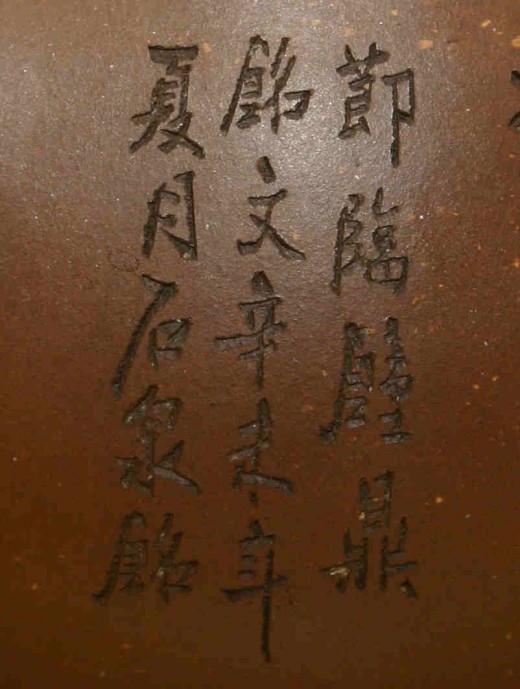 莭臨壁鼎
銘文辛未年
夏月石泉銘